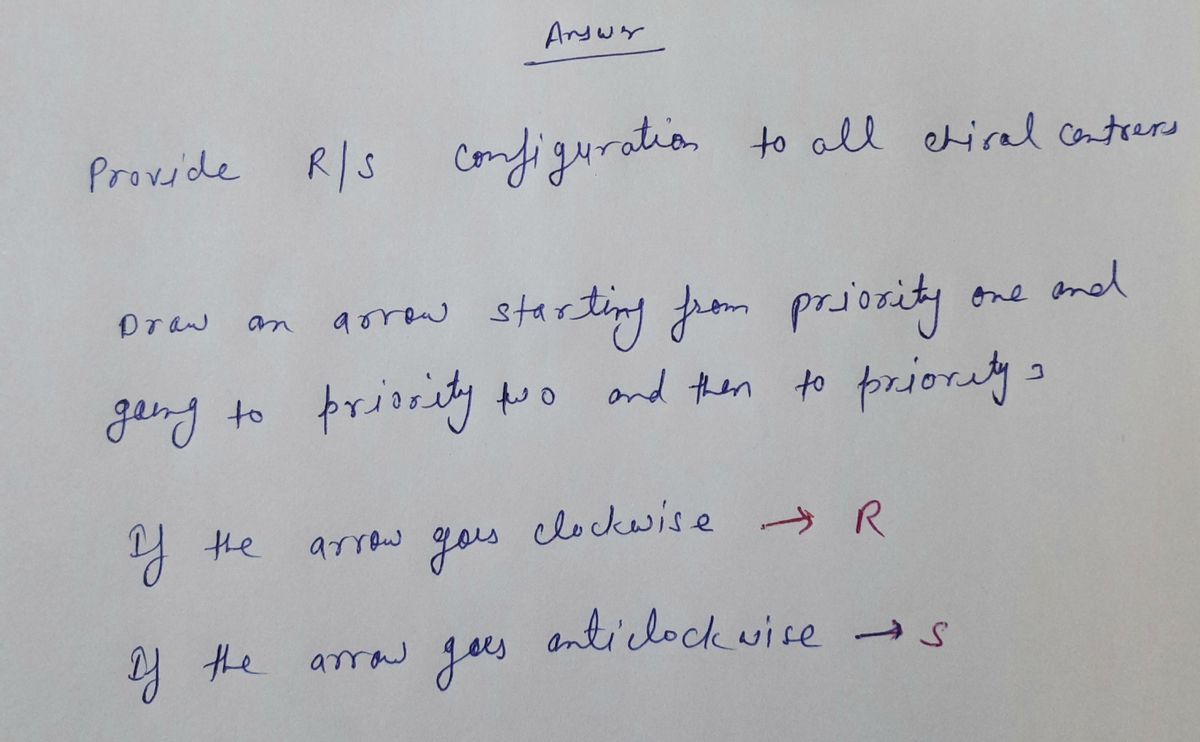 Answer
Provide R/S configuration to all chiral centrers
Draw an arrow starting from priority one and
going to priority two and then to priority 3
If the arrow goes clockwise → R
If the arrow goes anticlockwise → S